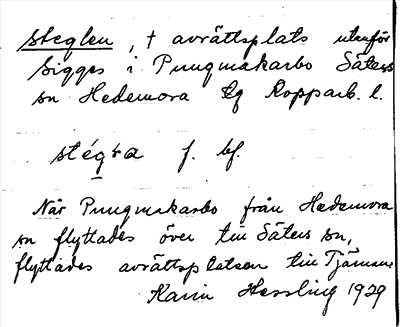 steglen, † avrättsplats utanför
Sigges i Pungmakarbo Säters
sn Hedemora lg Kopparb. l.
stégra f. bf.
När Pungmakarbo från Hedemora
sn flyttades över till Säters sn,
flyttades avrättsplatsen till
Karin Hessling 1929